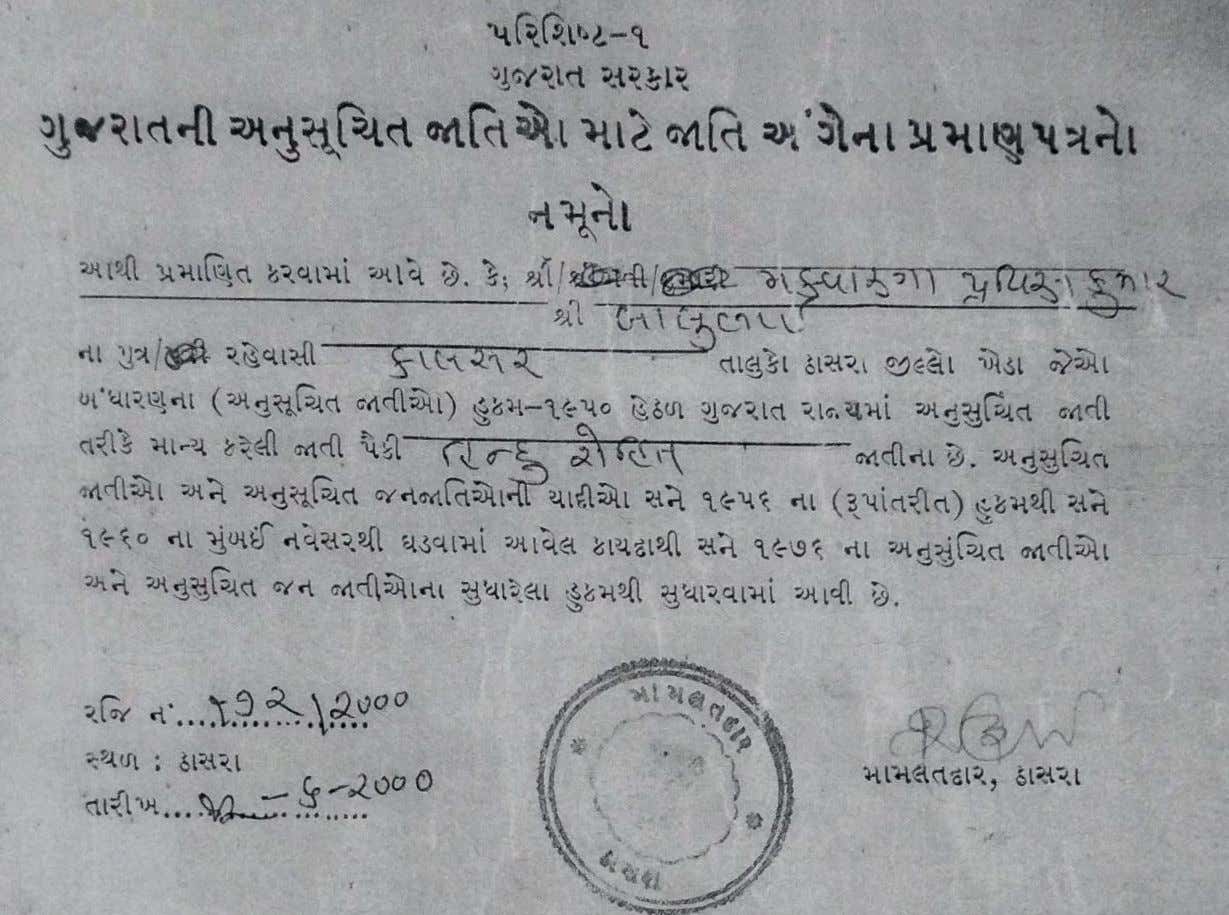 પરિશિષ્ટ-૧
ગુજરાત સરકાર
ગુજરાતની અનુસૂચિત જાતિઓ માટે જાતિ અંગેના પ્રમાણપત્રનો
નમૂનો
આથી પ્રમાણિત કરવામાં આવે છે. કે; શ્રી/શ્રીમતી/ મકવાણા પ્રવિણકુમાર
શ્રી બાબુભાઈ
ના પુત્ર/ રહેવાસી કાલસર તાલુકો ઠાસરા જીલ્લો ખેડા જેઓ
બંધારણના (અનુસૂચિત જાતીઓ) હુકમ-૧૯૫૦ હેઠળ ગુજરાત રાજ્યમાં અનુસુચિત જાતી
તરીકે માન્ય કરેલી જાતી પૈકી હિન્દુ રોહિત જાતીના છે. અનુસુચિત
જાતીઓ અને અનુસૂચિત જનજાતિઓની યાદીઓ સને ૧૯૫૬ ના (રૂપાંતરીત) હુકમથી સને
૧૯૬૦ ના મુંબઈ નવેસરથી ઘડવામાં આવેલ કાયદાથી સને ૧૯૭૬ ના અનુસુંચિત જાતીઓ
અને અનુસુચિત જન જાતીઓના સુધારેલા હુકમથી સુધારવામાં આવી છે.
રજિ નં....૧૭૨/2000
સ્થળ : ઠાસરા
તારીખ.... -૬-2000
મામલતદાર
ઠાસરા
મામલતદાર, ઠાસરા